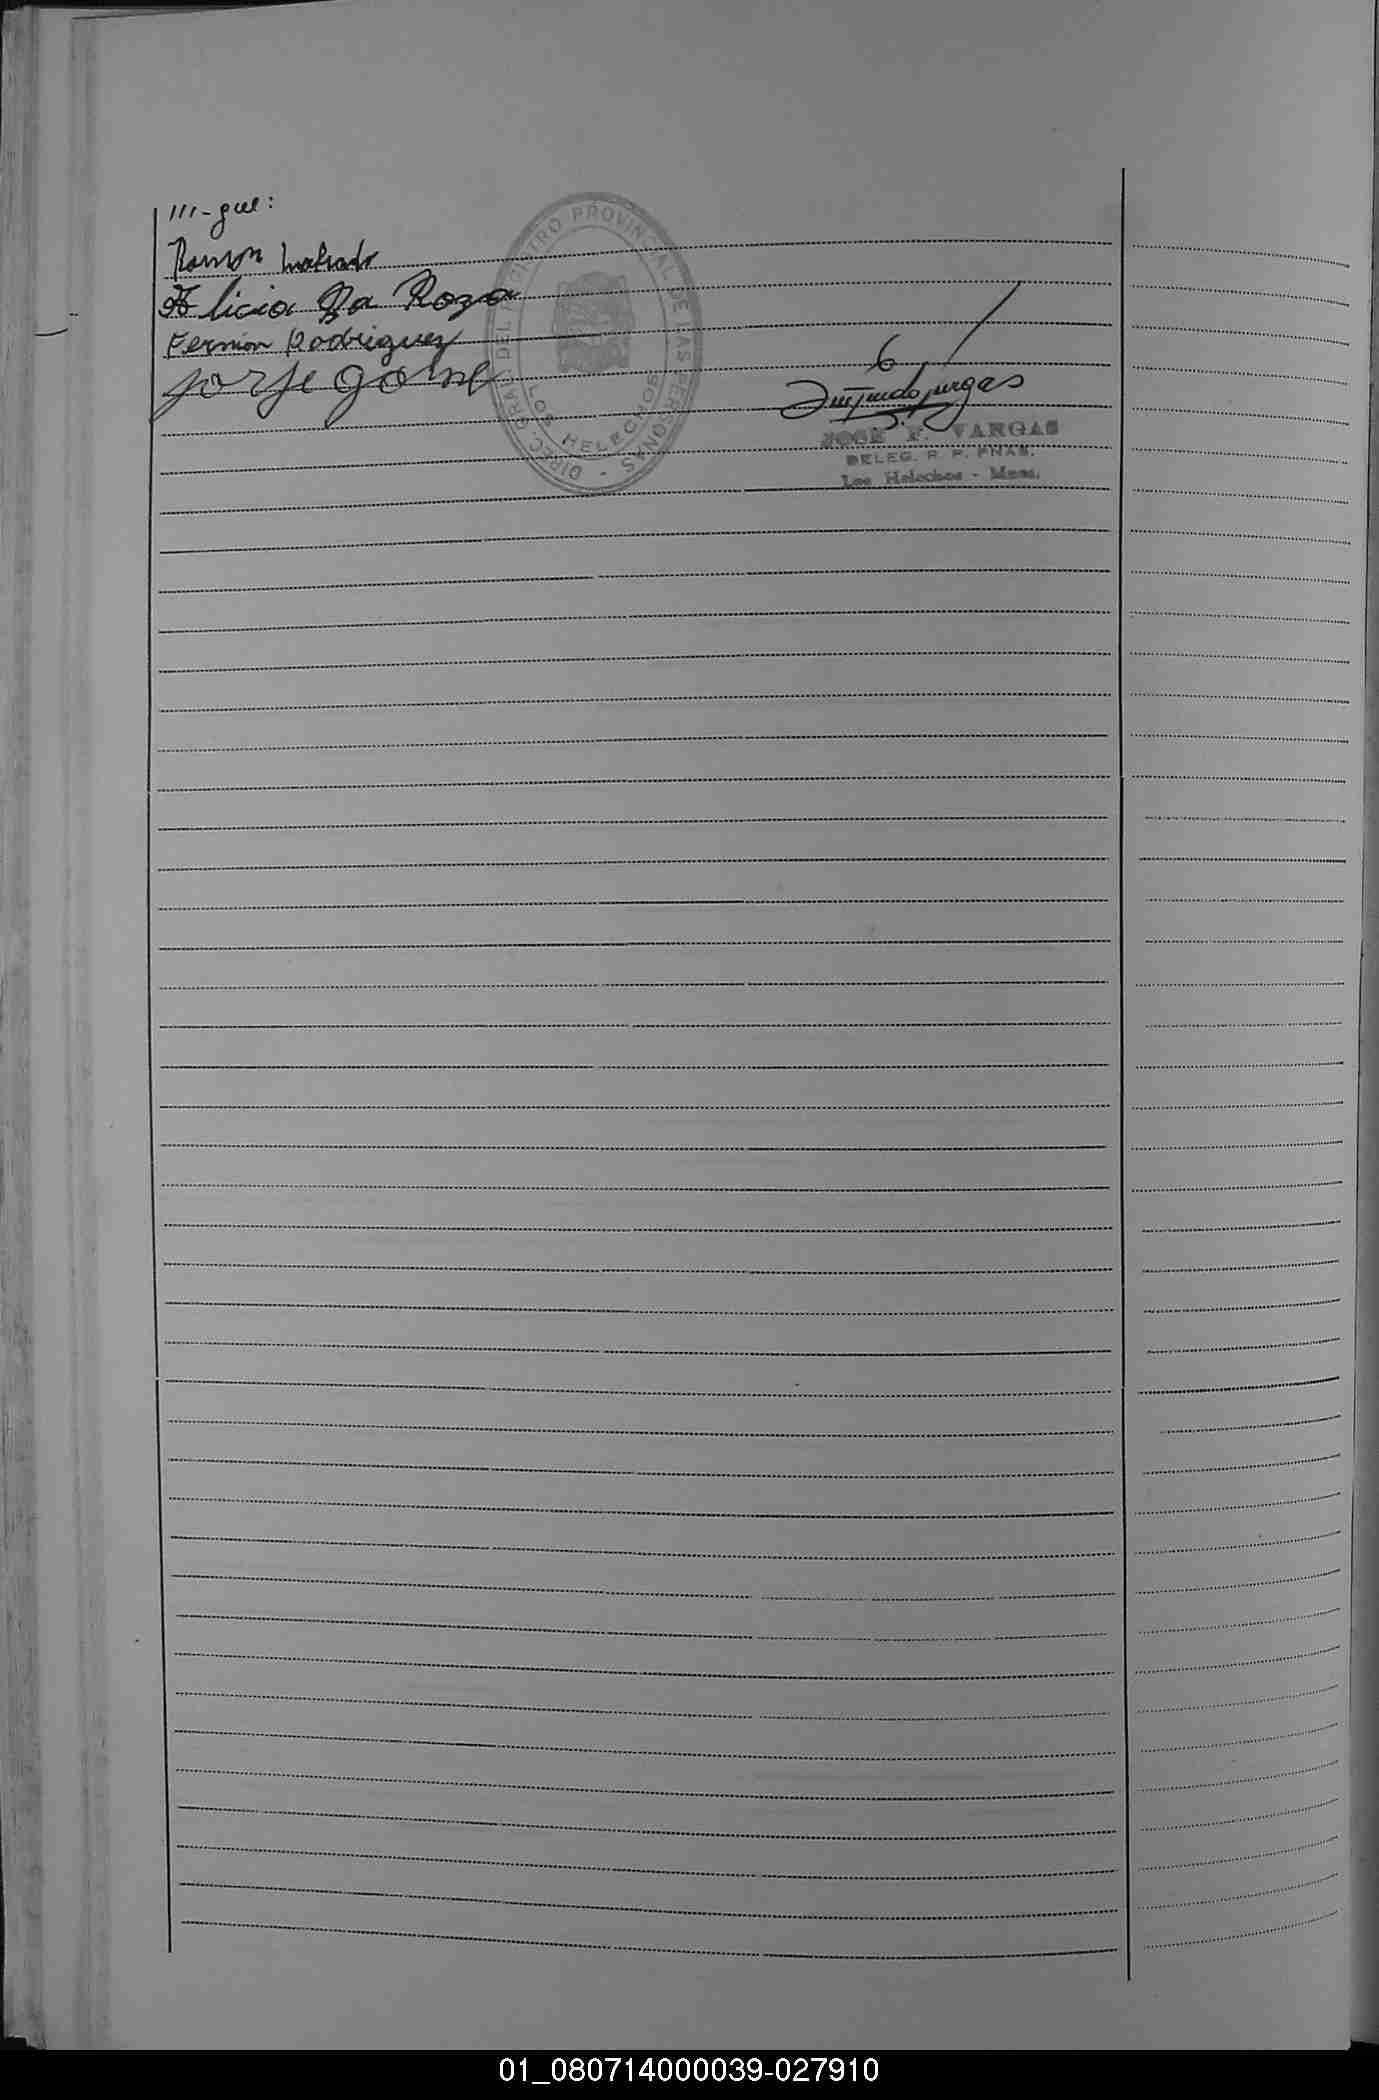 III-gue:
Ramon Machado
Alicia Da Roza
Fermín Rodriguez
Jorge Gome
DIREC. GRAL. DEL REGISTRO PROVINCIAL DE LAS PERSONAS -
LOS HELECHOS
JOSE F. VARGAS
DELEG. R. P. PNAS.
Los Helechos - Mnes.
01_080714000039-027910